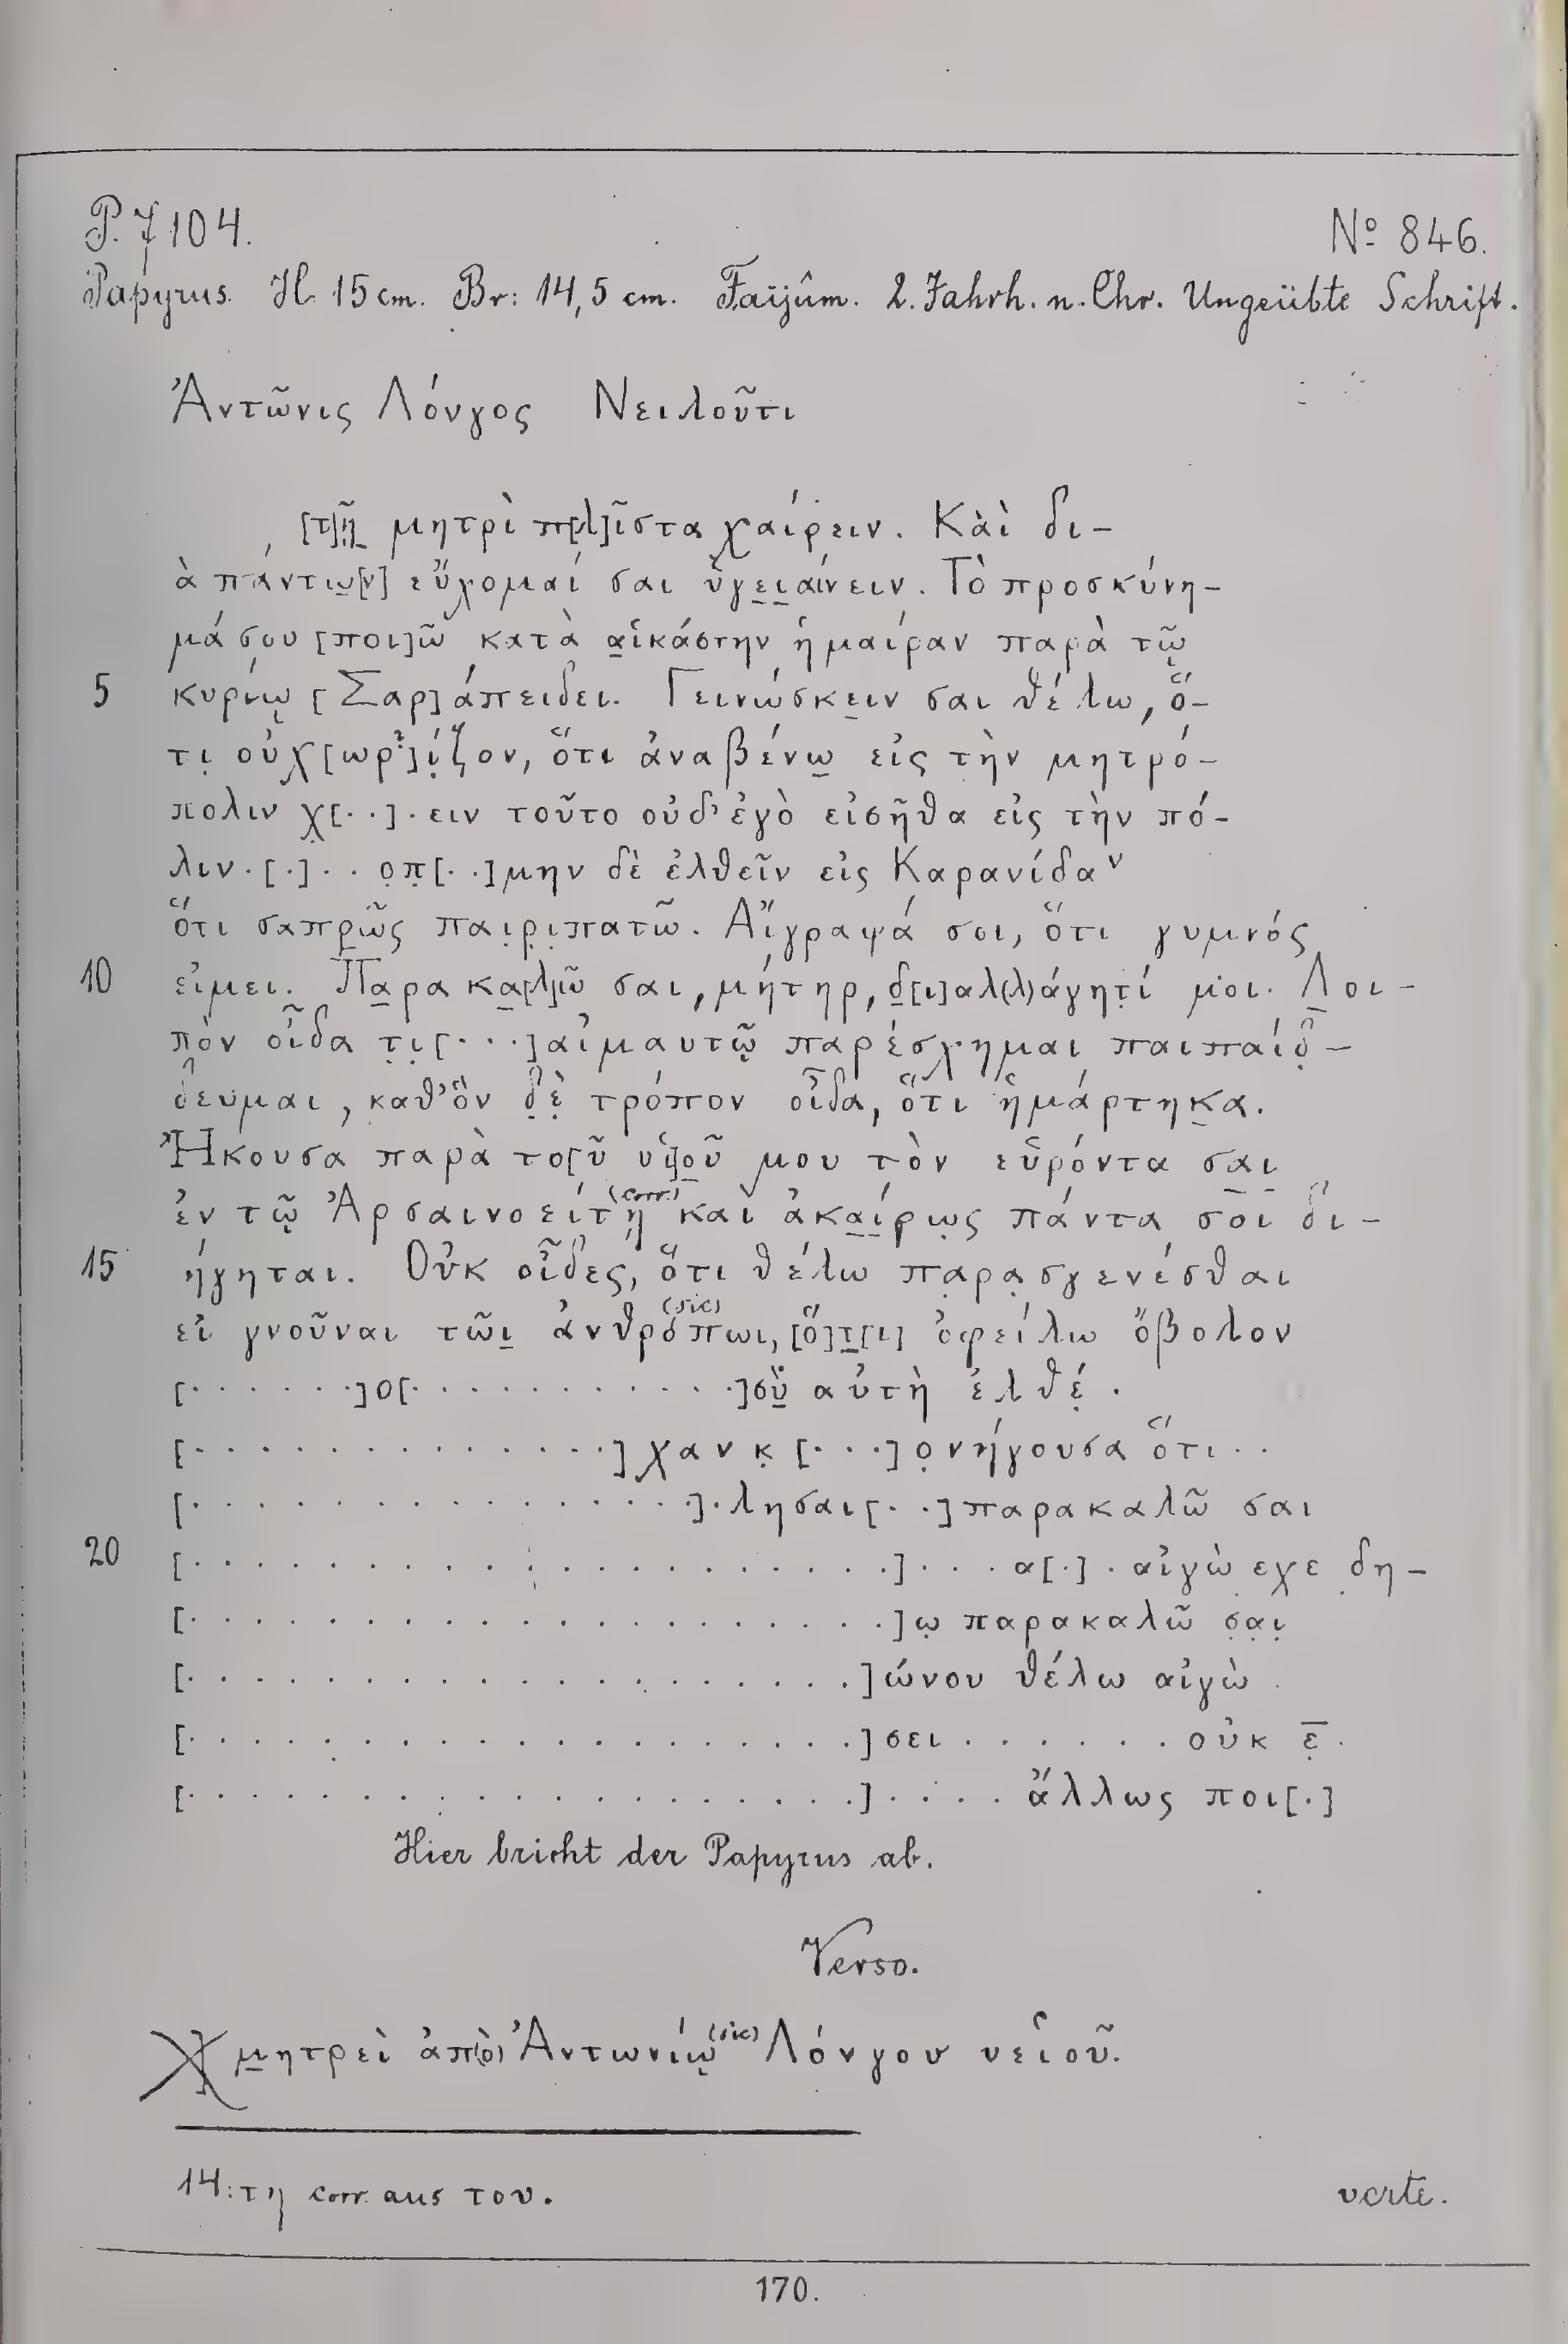 P. 7104. Nº 846.
Papyrus. H. 15 cm. Br: 14,5 cm. Faijûm. 2. Jahrh. n. Chr. Ungeübte Schrift.
Ἀντῶνις Λόνγος Νειλοῦτι
[τ]ῇ μητρὶ π[λ]ῖστα χαίρειν. Καὶ δι-
ὰ πάντω[ν] εὔχομαί σαι ὑγειαίνειν. Τὸ προσκύνη-
μά σου [ποι]ῶ κατὰ αἱκάστην ἡμαίραν παρὰ τῷ
5 κυρίῳ [Σαρ]άπειδει. Γεινώσκειν σαι θέλω, ὅ-
τι οὐχ[ωρ?]ίζον, ὅτι ἀναβένω εἰς τὴν μητρό-
πολιν χ[..].ειν τοῦτο οὐδ’ ἐγὸ εἰσῆθα εἰς τὴν πό-
λιν.[.]..οπ[..]μην δὲ ἐλθεῖν εἰς Καρανίδαν
ὅτι σαπρῶς παιριπατῶ. Αἴγραψά σοι, ὅτι γυμνός
10 εἰμει. Παρακα[λ]ῶ σαι, μήτηρ, δ[ι]αλ(λ)άγητί μοι. Λοι-
πὸν οἶδα τι[...]αἰμαυτῷ παρέσχημαι παιπαίδ-
δευμαι, καθ’ ὃν δὲ τρόπον οἶδα, ὅτι ἡμάρτηκα.
Ἤκουσα παρὰ το[ῦ υἱ]οῦ μου τὸν εὑρόντα σαι
(corr.)
ἐν τῷ Ἀρσαινοείτῃ καὶ ἀκαίρως πάντα σοι δι-
15 ήγηται. Οὐκ οἶδες, ὅτι θέλω παρασγενέσθαι
(sic)
εἰ γνοῦναι τῶι ἀνθρόπωι, [ὅ]τ[ι] ὀφείλω ὄβολον
[.......]ο[............]σὺ αὐτὴ ἐλθέ.
[..............]χανκ[...]ονήγουσα ὅτι..
[................].λησαι[..]παρακαλῶ σαι
20 [.....................]....α[.].αἰγὼ εχε δη-
[.....................]ω παρακαλῶ σαι
[....................]ώνου θέλω αἰγὼ
[....................]σει.......οὐκ ε.
[....................]....ἄλλως ποι[.]
Hier bricht der Papyrus ab.
Verso.
μητρεὶ ἀπ(ὸ) Ἀντωνίῳ (sic) Λόνγου υεἱοῦ.
14: τη corr. aus του. verte.
170.